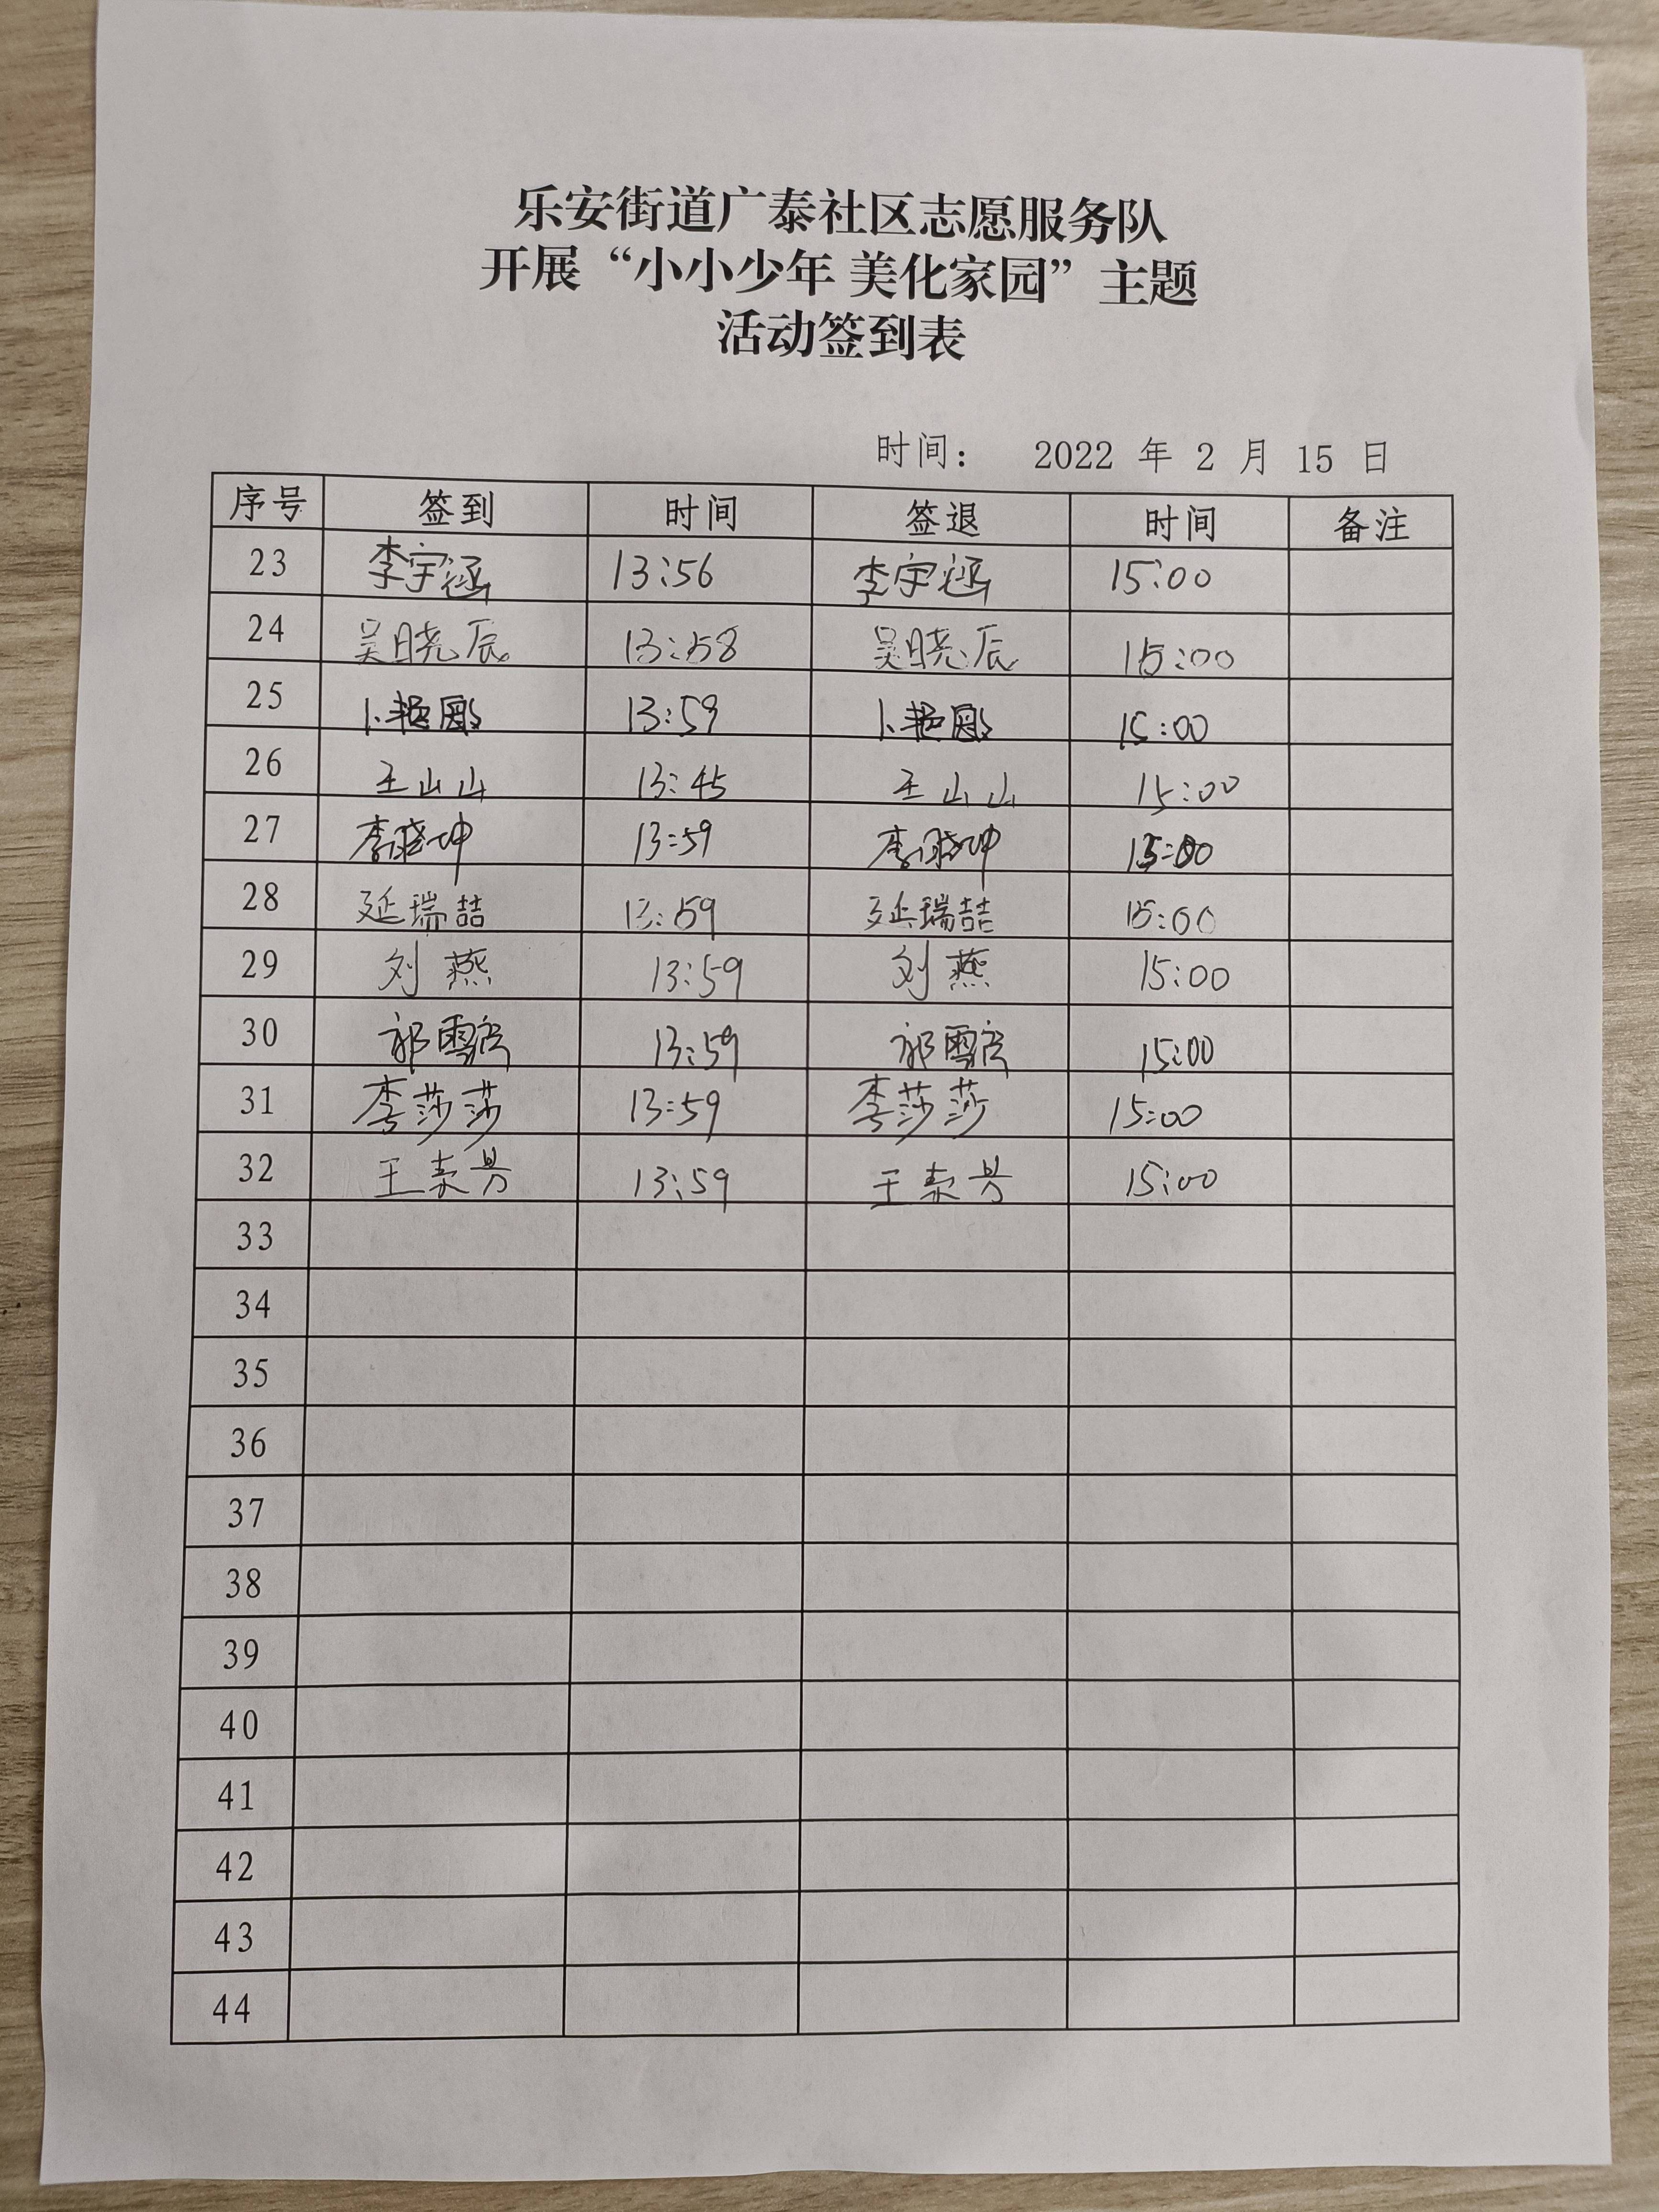 乐安街道广泰社区志愿服务队
开展“小小少年 美化家园”主题
活动签到表
时间： 2022 年 2 月 15 日
序号 签到 时间 签退 时间 备注
23 李宇涵 13:56 李宇涵 15:00
24 吴晓辰 13:58 吴晓辰 15:00
25 13:59 15:00
26 王山山 13:45 王山山 15:00
27 李晓坤 13:59 李晓坤 15:00
28 延瑞喆 13:59 延瑞喆 15:00
29 刘燕 13:59 刘燕 15:00
30 13:59 15:00
31 李莎莎 13:59 李莎莎 15:00
32 13:59 15:00
33
34
35
36
37
38
39
40
41
42
43
44